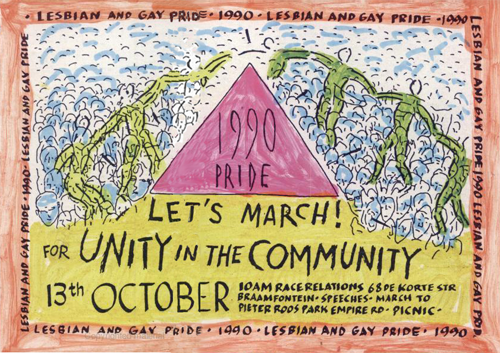 · LESBIAN AND GAY PRIDE · 1990 · LESBIAN AND GAY PRIDE · 1990
LESBIAN AND GAY PRIDE · 1990 · LESBIAN AND GAY PRIDE
LESBIAN AND GAY PRIDE · 1990 LESBIAN AND GAY PRIDE
1990
PRIDE
LET'S MARCH!
FOR UNITY IN THE COMMUNITY
13th OCTOBER
10AM RACE RELATIONS 68 DE KORTE STR
BRAAMFONTEIN · SPEECHES · MARCH TO
PIETER ROOS PARK EMPIRE RD · PICNIC ·
LESBIAN AND GAY PRIDE · 1990 · LESBIAN AND GAY PRIDE